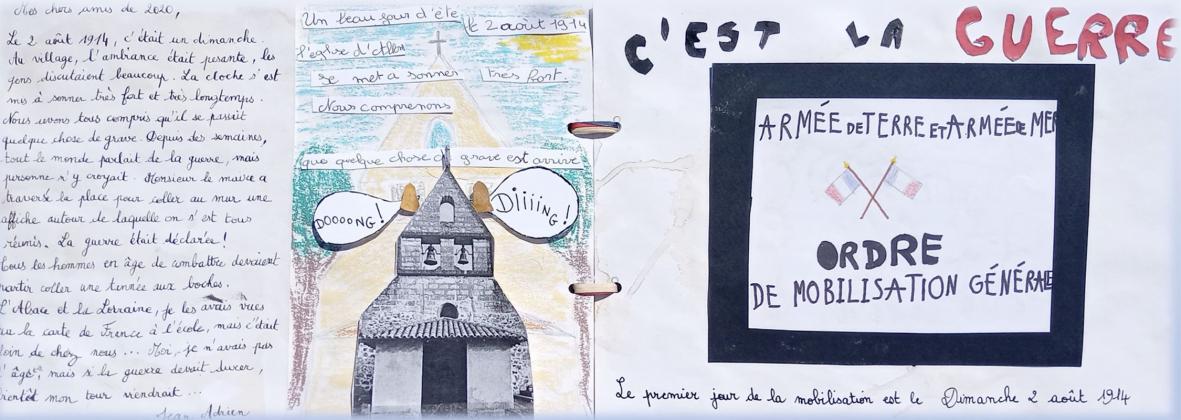 Mes chers amis de 2020,
Le 2 août 1914, c'était un dimanche.
Au village, l'ambiance était pesante, les
gens discutaient beaucoup. La cloche s'est
mis à sonner très fort et très longtemps.
Nous avons tous compris qu'il se passait
quelque chose de grave. Depuis des semaines,
tout le monde parlait de la guerre, mais
personne n'y croyait. Monsieur le maire a
traversé la place pour coller au mur une
affiche autour de laquelle on s'est tous
réunis. La guerre était déclarée !
Tous les hommes en âge de combattre devaient
partir coller une tannée aux boches.
L'Alsace et la Lorraine, je les avais vues
sur la carte de France à l'école, mais c'était
loin de chez nous... Moi, je n'avais pas
l'âge, mais si la guerre devait durer,
bientôt mon tour viendrait...
Jean Adrien
Un beau jour d'été le 2 août 1914
l'église
se met a sonner très fort.
Nous comprenons
que quelque chose de grave est arrivé
DOOOONG!
DiiiiNG!
C'EST LA GUERRE
ARMÉE DE TERRE ET ARMÉE DE MER
ORDRE
DE MOBILISATION GÉNÉRALE
Le premier jour de la mobilisation est le Dimanche 2 août 1914